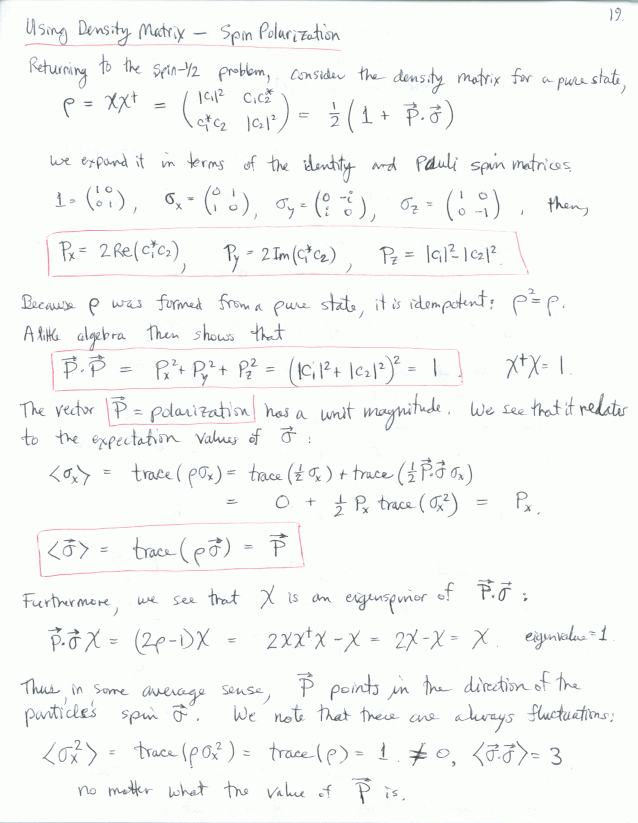 19.
Using Density Matrix — Spin Polarization
Returning to the spin-½ problem, consider the density matrix for a pure state,
ρ = χχ† = ( |c₁|² c₁c₂* ; c₁*c₂ |c₂|² ) = ½ ( 1 + P⃗·σ⃗ )
we expand it in terms of the identity and Pauli spin matrices.
1 = ( 1 0 ; 0 1 ), σₓ = ( 0 1 ; 1 0 ), σ_y = ( 0 -i ; i 0 ), σ_z = ( 1 0 ; 0 -1 ), then,
Pₓ = 2Re(c₁*c₂), P_y = 2Im(c₁*c₂), P_z = |c₁|²-|c₂|²
Because ρ was formed from a pure state, it is idempotent: ρ² = ρ.
A little algebra then shows that
P⃗·P⃗ = Pₓ² + P_y² + P_z² = (|c₁|² + |c₂|²)² = 1 χ†χ = 1
The vector P⃗ = polarization has a unit magnitude. We see that it relates
to the expectation values of σ⃗ :
<σₓ> = trace(ρσₓ) = trace(½σₓ) + trace(½P⃗·σ⃗ σₓ)
= 0 + ½ Pₓ trace(σₓ²) = Pₓ.
<σ⃗> = trace(ρσ⃗) = P⃗
Furthermore, we see that χ is an eigenspinor of P⃗·σ⃗ :
P⃗·σ⃗ χ = (2ρ-1)χ = 2χχ†χ - χ = 2χ - χ = χ. eigenvalue = 1.
Thus, in some average sense, P⃗ points in the direction of the
particle's spin σ⃗. We note that there are always fluctuations:
<σₓ²> = trace(ρσₓ²) = trace(ρ) = 1. ≠ 0, <σ⃗·σ⃗> = 3
no matter what the value of P⃗ is.